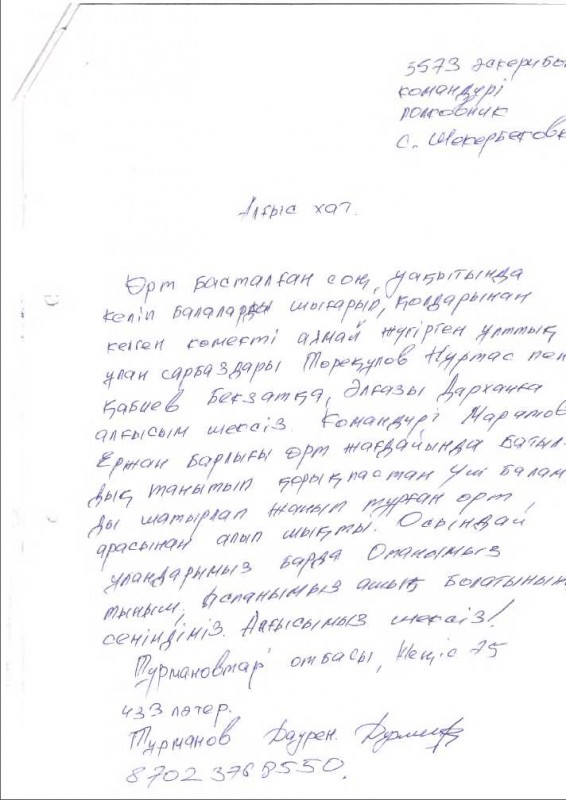 3573 әскери бө
командирі
полковник
С. Шекербеков
Алғыс хат.
Өрт басталған соң, уақытында
келіп балаларды шығарып, қолдарынан
келген көмекті аямай жүгірген ұлттық
ұлан сарбаздары Төреқұлов Нұртас пен
Қабиев Бекзатқа, Әлғазы Дарханға
алғысым шексіз. Командирі Маратов
Ержан барлығы өрт жағдайында батыл-
дық танытып қорықпастан үш балам
ды шатырлап жанып тұрған өрт
арасынан алып шықты. Осындай
ұландарымыз барда Отанымыз
тыныш, Аспанымыз ашық болатынын
сенімдіміз. Алғысымыз шексіз!
Тұрмановтар отбасы, 75
433 пәтер.
Тұрманов Даурен
8702 376 8550.